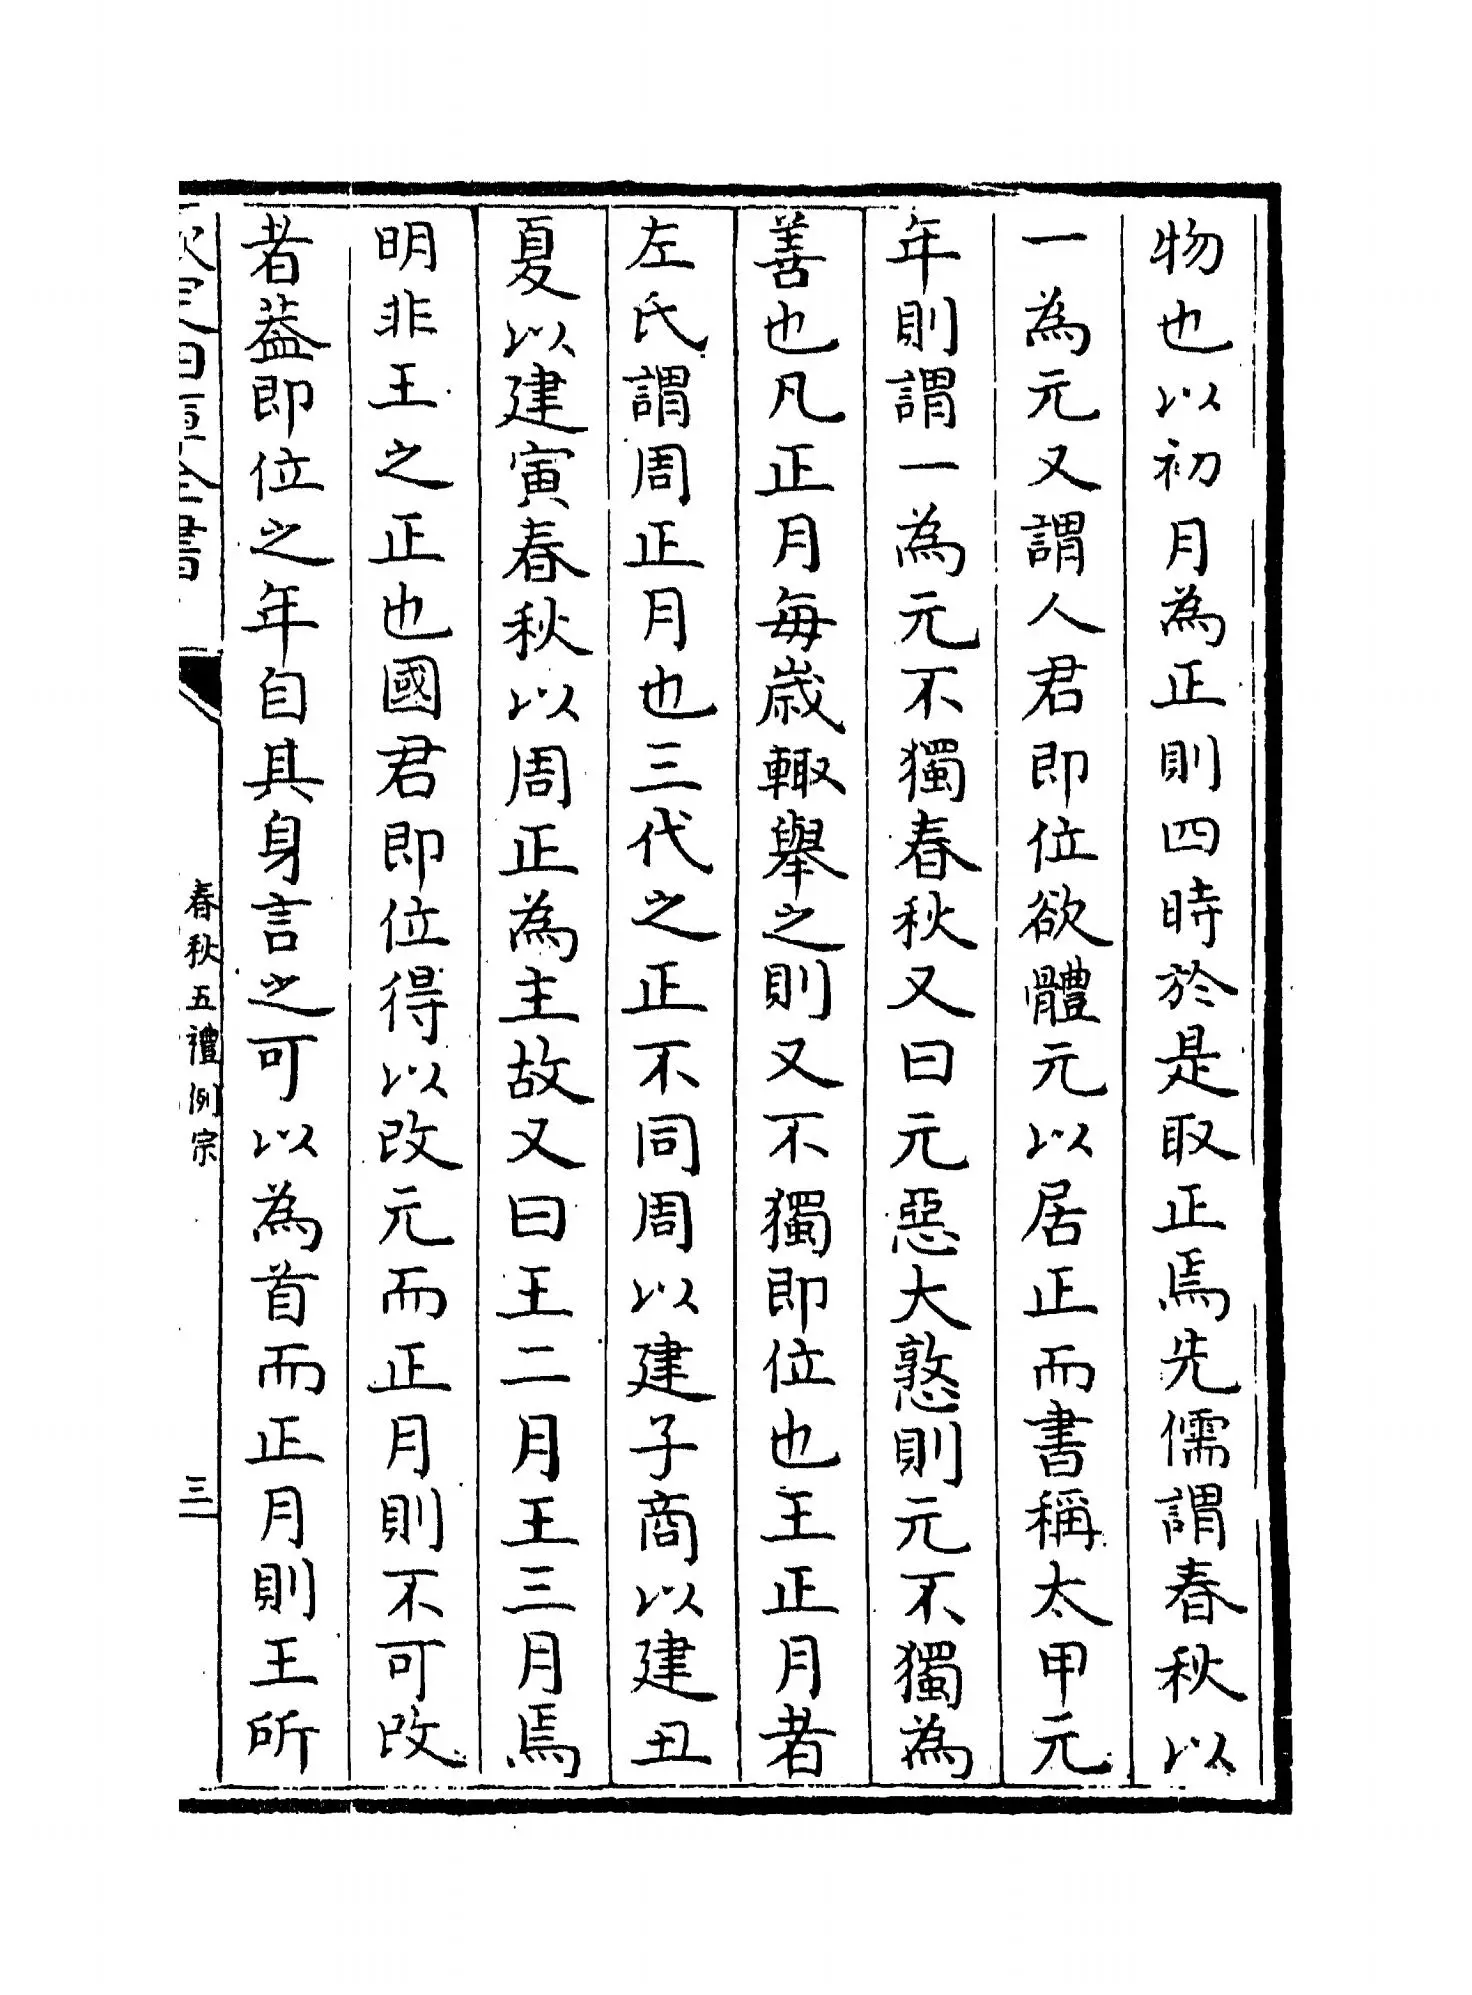 物也以初月為正則四時於是取正焉先儒謂春秋以
一為元又謂人君即位欲體元以居正而書稱太甲元
年則謂一為元不獨春秋又曰元惡大憝則元不獨為
善也凡正月每歲輙舉之則又不獨即位也王正月者
左氏謂周正月也三代之正不同周以建子商以建丑
夏以建寅春秋以周正為主故又曰王二月王三月焉
明非王之正也國君即位得以改元而正月則不可改
者葢即位之年自其身言之可以為首而正月則王所
欽定四庫全書
春秋五禮例宗
三